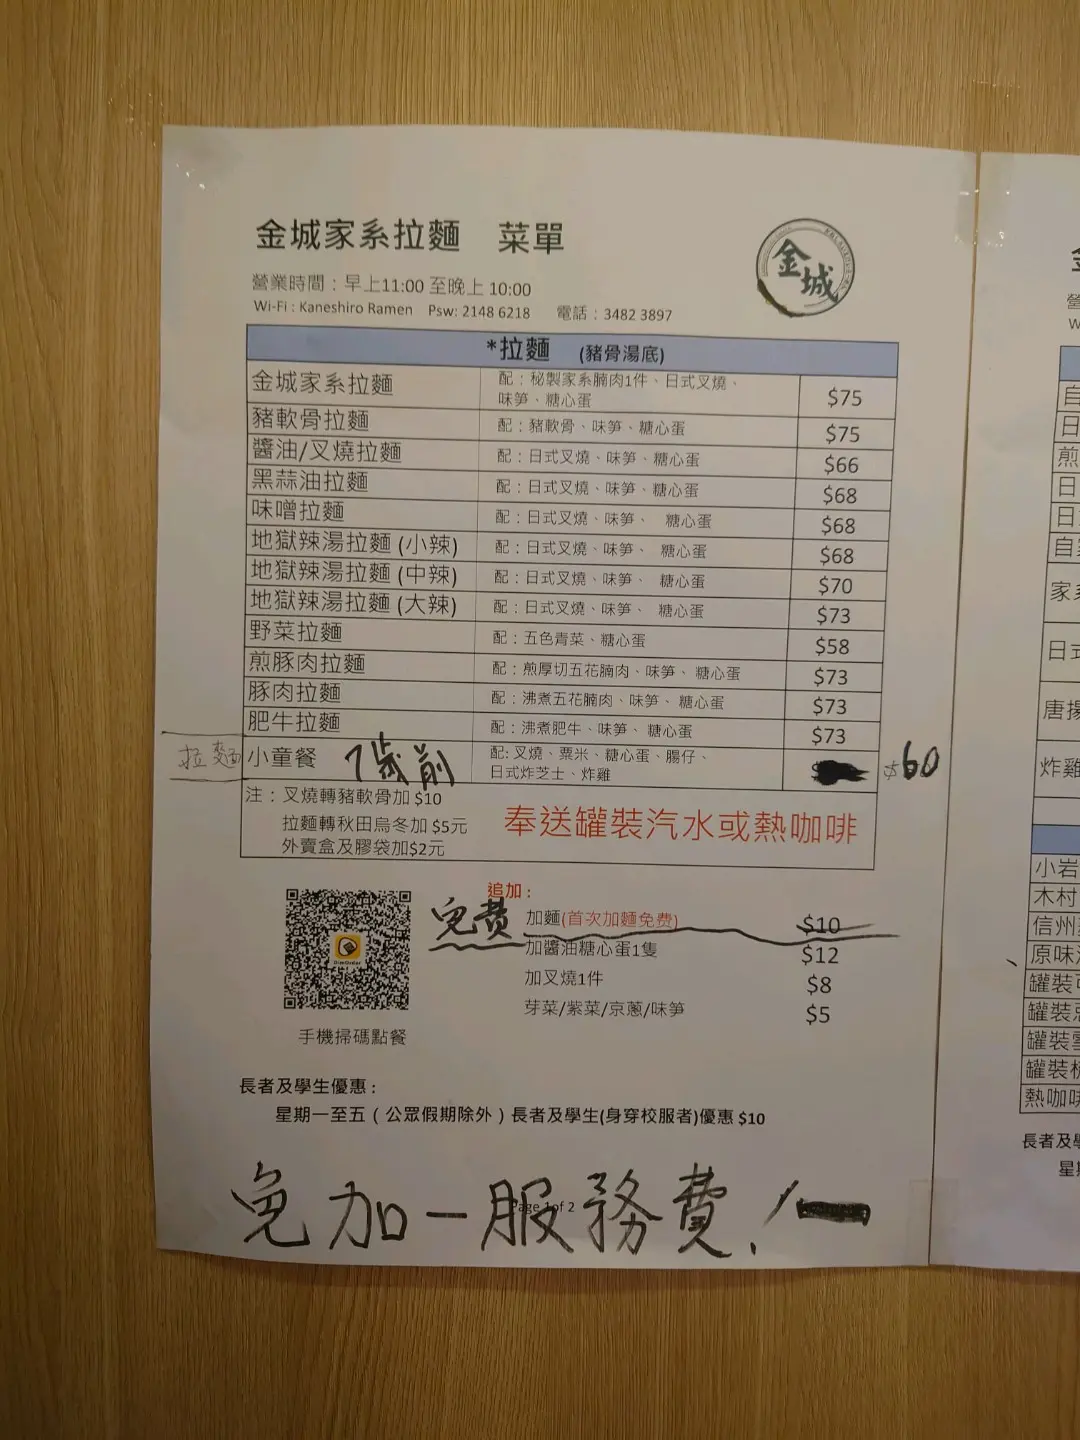 金城家系拉麵 菜單
金城
營業時間：早上11:00 至晚上 10:00
Wi-Fi : Kaneshiro Ramen Psw: 2148 6218 電話：3482 3897
*拉麵 (豬骨湯底)
金城家系拉麵 配：秘製家系腩肉1件、日式叉燒、味笋、糖心蛋 $75
豬軟骨拉麵 配：豬軟骨、味笋、糖心蛋 $75
醬油/叉燒拉麵 配：日式叉燒、味笋、糖心蛋 $66
黑蒜油拉麵 配：日式叉燒、味笋、糖心蛋 $68
味噌拉麵 配：日式叉燒、味笋、 糖心蛋 $68
地獄辣湯拉麵 (小辣) 配：日式叉燒、味笋、 糖心蛋 $68
地獄辣湯拉麵 (中辣) 配：日式叉燒、味笋、 糖心蛋 $70
地獄辣湯拉麵 (大辣) 配：日式叉燒、味笋、 糖心蛋 $73
野菜拉麵 配：五色青菜、糖心蛋 $58
煎豚肉拉麵 配：煎厚切五花腩肉、味笋、 糖心蛋 $73
豚肉拉麵 配：沸煮五花腩肉、味笋、 糖心蛋 $73
肥牛拉麵 配：沸煮肥牛、味笋、 糖心蛋 $73
拉麵 小童餐 7歲前 配: 叉燒、粟米、糖心蛋、腸仔、日式炸芝士、炸雞 $60
注：叉燒轉豬軟骨加 $10
拉麵轉秋田烏冬加 $5元
外賣盒及膠袋加$2元
奉送罐裝汽水或熱咖啡
追加 :
免费 加麵(首次加麵免费) $10
加醬油糖心蛋1隻 $12
加叉燒1件 $8
芽菜/紫菜/京蔥/味笋 $5
手機掃碼點餐
長者及學生優惠 :
星期一至五（公眾假期除外）長者及學生(身穿校服者)優惠 $10
Page 1 of 2
免加一服務費!
自
日
煎
日
日
自家
家系
日式
唐揚
炸雞
小岩
木村
信州
原味
罐裝
罐裝
罐裝
罐裝
熱咖啡
長者及學
星